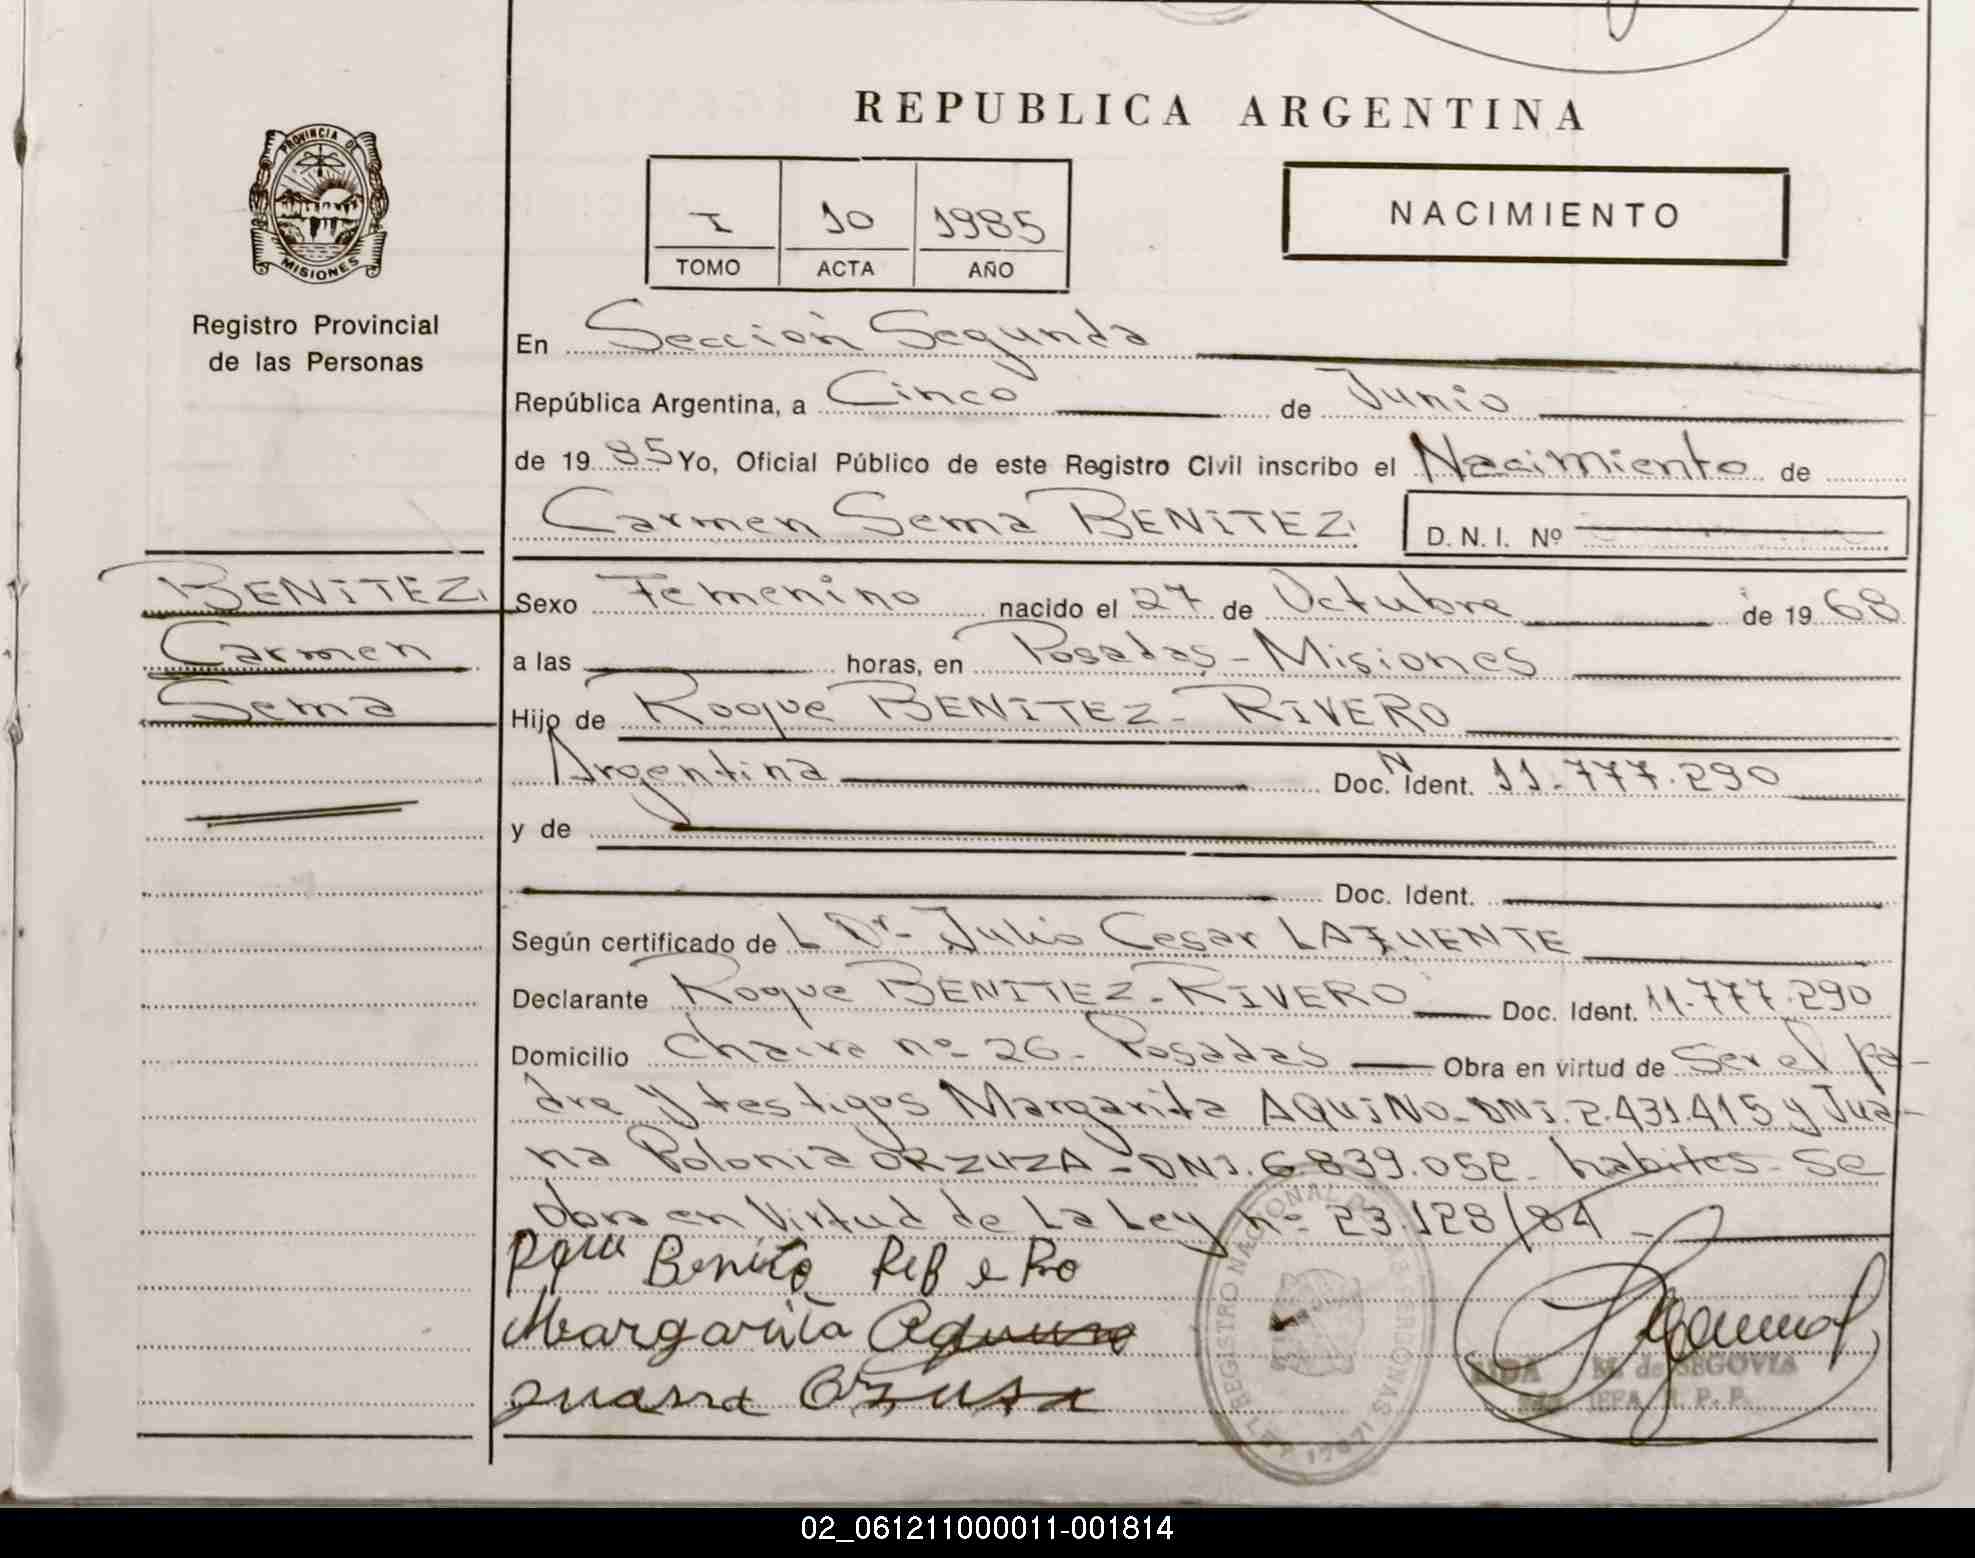 REPUBLICA ARGENTINA
PROVINCIA DE
MISIONES
Registro Provincial
de las Personas
I 10 1985
TOMO ACTA AÑO
NACIMIENTO
En Sección Segunda
República Argentina, a Cinco de Junio
de 1985 Yo, Oficial Público de este Registro Civil inscribo el Nacimiento de
Carmen Sema BENITEZ D. N. I. Nº
BENITEZ
Carmen
Sema
Sexo Femenino nacido el 27 de Octubre de 1968
a las horas, en Posadas - Misiones
Hijo de Roque BENITEZ - RIVERO
Argentina Doc. N Ident. 11.777.290
y de
Doc. Ident.
Según certificado de L Dr. Julio Cesar LAFUENTE
Declarante Roque BENITEZ - RIVERO Doc. Ident. 11.777.290
Domicilio nº 26 - Posadas Obra en virtud de Ser el pa-
dre y testigos Margarita AQUINO - DNI. 2.431.415 y Jua-
na Polonia ORZUZA - DNI. 6.839.052 - habiles - Se
obra en Virtud de La Ley nº 23.128/84 -
Benito
Margarita Aquino
Juana
REGISTRO NACIONAL DE LAS PERSONAS
LEY 17671
M. de SEGOVIA
JEFA R. P. P.
02_061211000011-001814